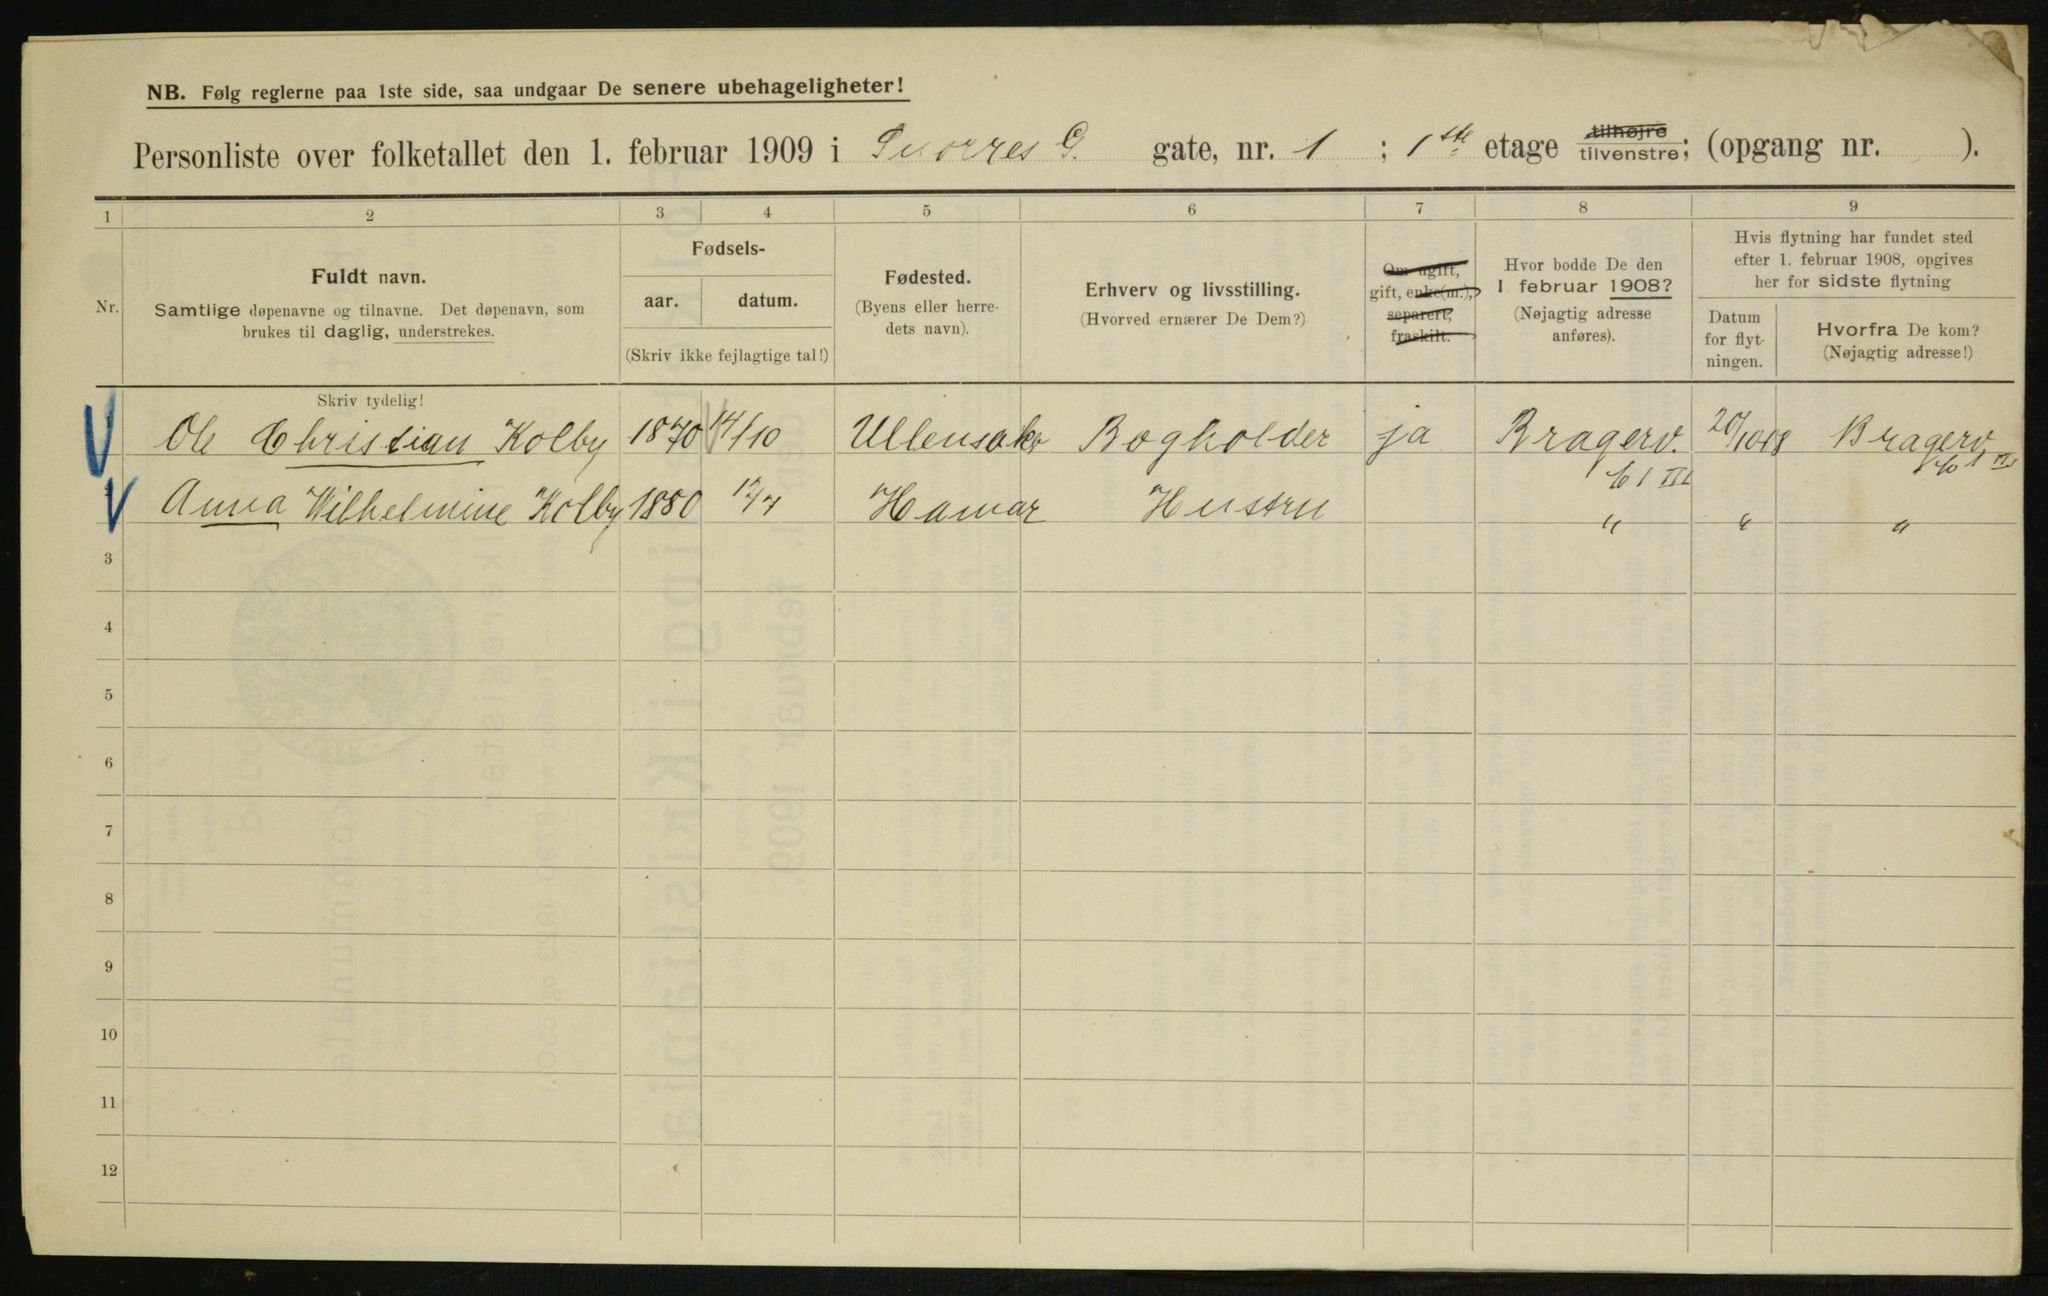 NB. Følg reglerne paa 1ste side, saa undgaar De senere ubehageligheter!
Personliste over folketallet den 1. februar 1909 i Snorres G. gate, nr. 1 ; 1ste etage tilhøjre tilvenstre; (opgang nr. ).
1 2 3 4 5 6 7 8 9
Nr.
Fuldt navn.
Samtlige døpenavne og tilnavne. Det døpenavn, som
brukes til daglig, understrekes.
Fødsels-
aar. datum.
(Skriv ikke fejlagtige tal!)
Fødested.
(Byens eller herre-
dets navn).
Erhverv og livsstilling.
(Hvorved ernærer De Dem?)
Om ugift,
gift, enke(m.),
separert,
fraskilt.
Hvor bodde De den
1 februar 1908?
(Nøjagtig adresse
anføres).
Hvis flytning har fundet sted
efter 1. februar 1908, opgives
her for sidste flytning
Datum
for flyt-
ningen.
Hvorfra De kom?
(Nøjagtig adresse!)
Skriv tydelig!
Ole Christian Kolby 1870 14/10 Ullensaker Bogholder ja Bragerv. 20/10 08 Bragerv.
1 III
Anna Wilhelmine Kolby 1880 Hamar Hustru " " "
3
4
5
6
7
8
9
10
11
12